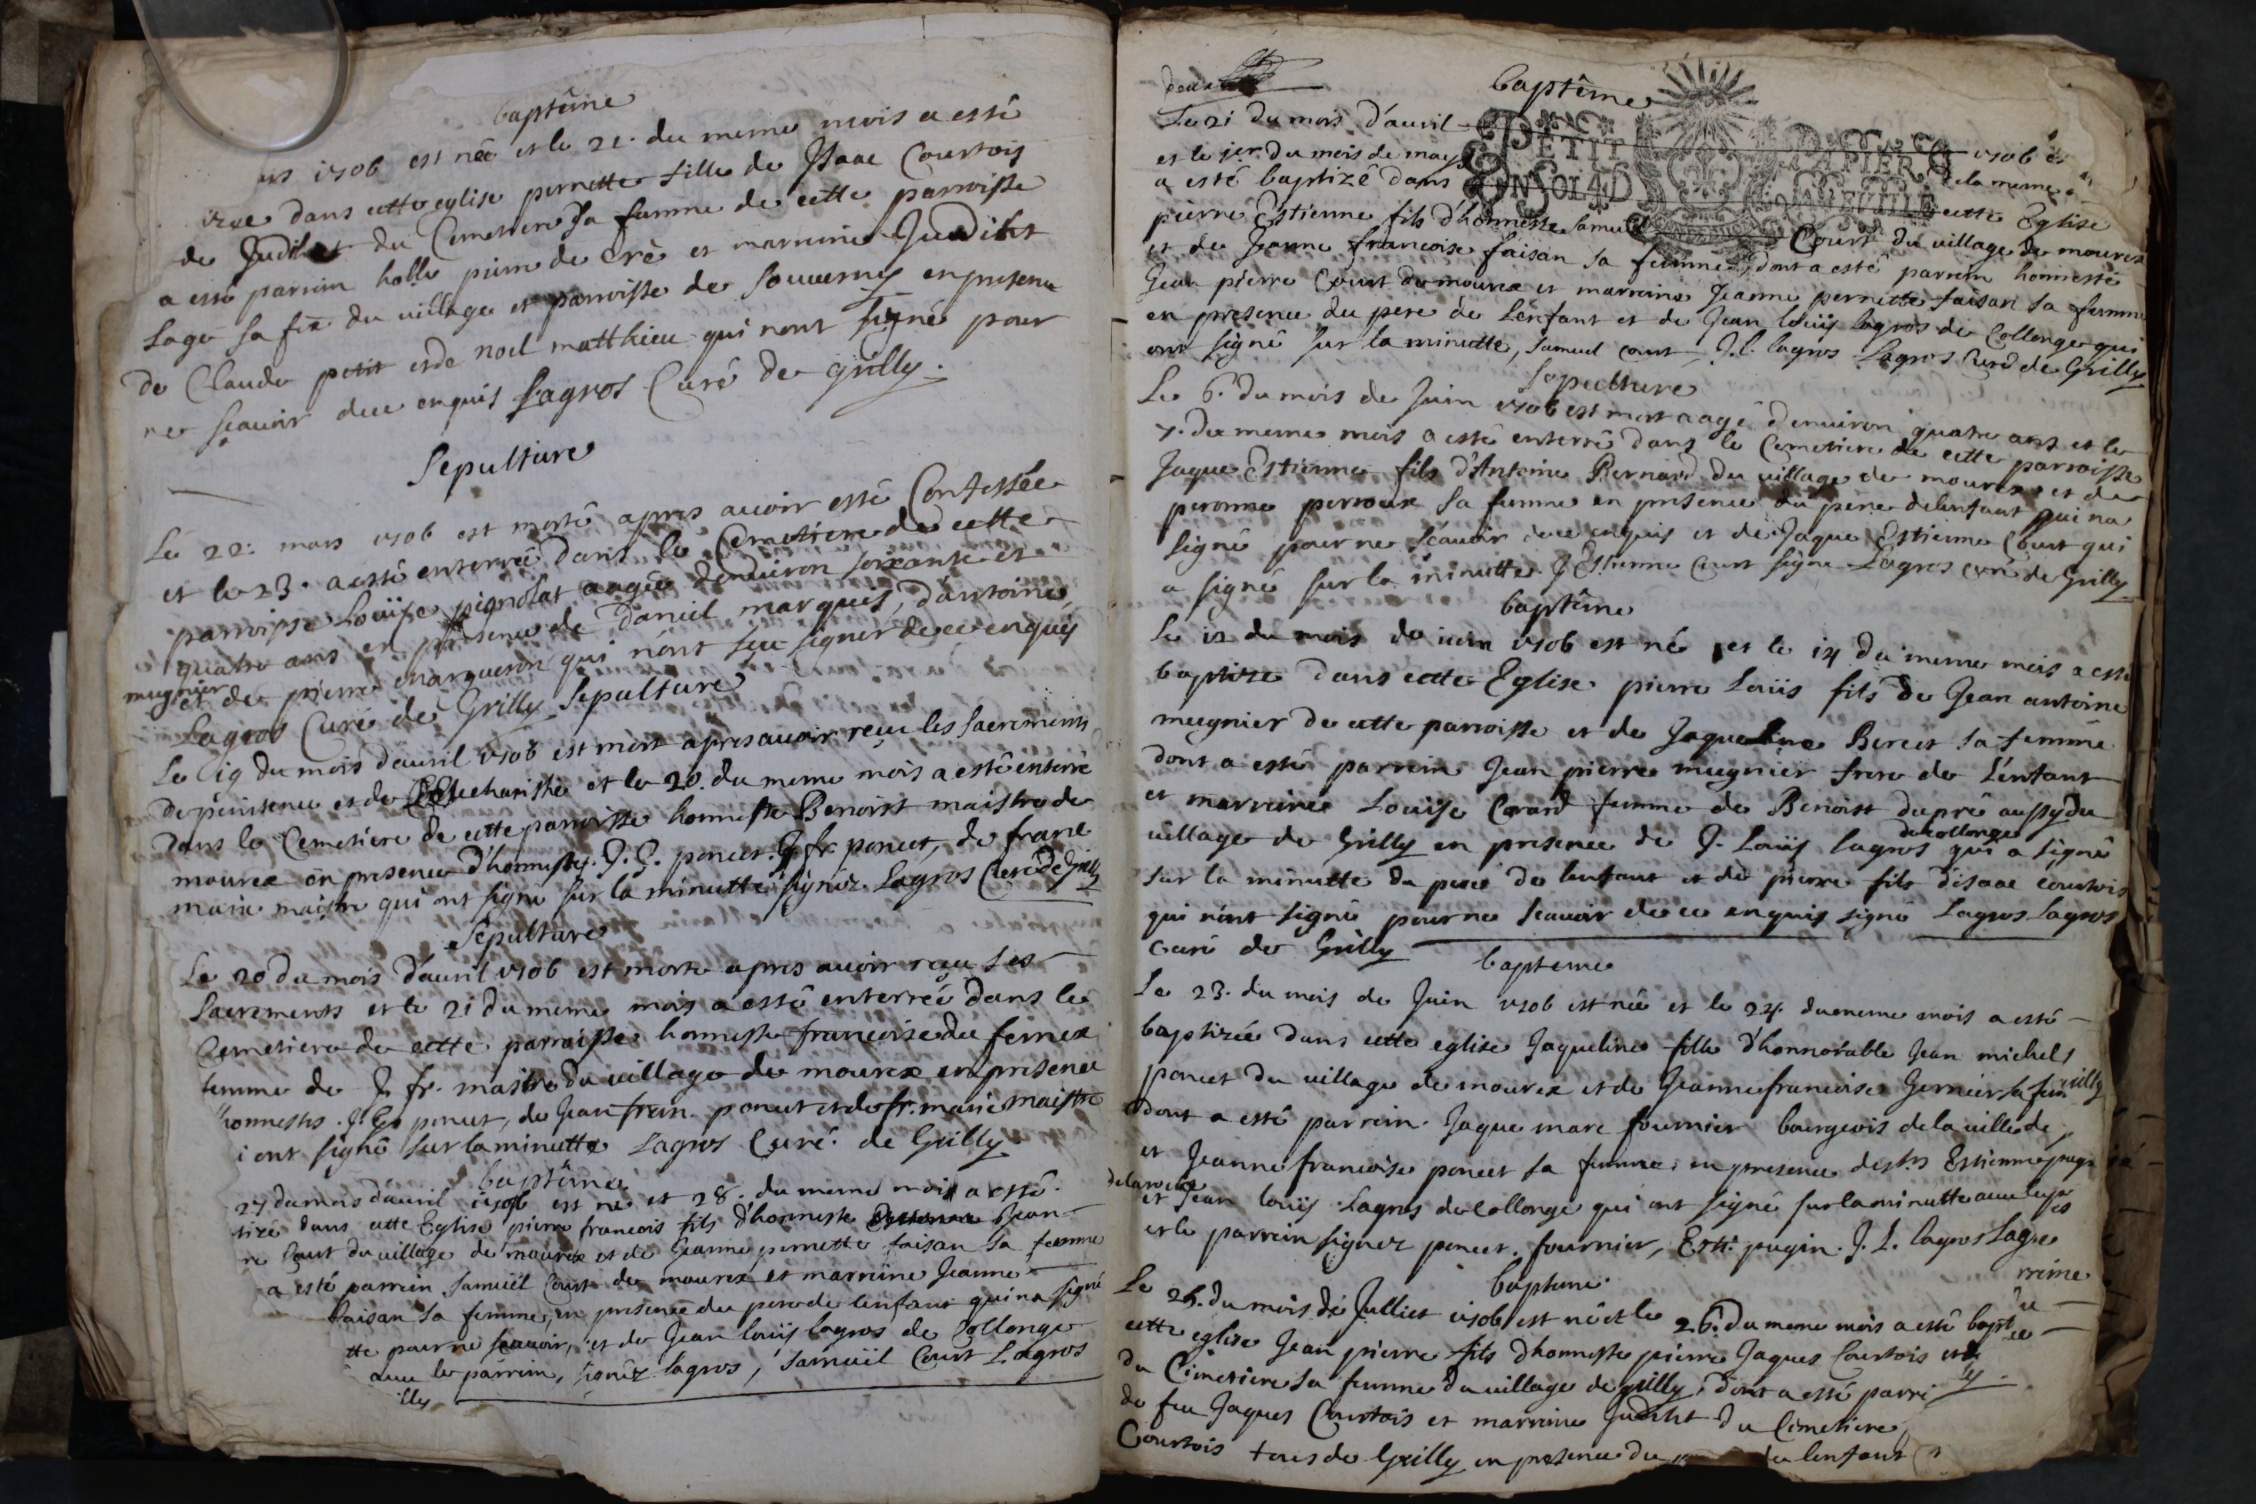 baptême
1706 est née et le 21. du meme mois a esté
dans cette eglise pernette fille de Isaac Courtois
de Judith du Cemetiere sa femme de cette parroisse
a esté parrein pierre de Cré et marraine Judith
Lage sa fe du village et parroisse de Sauverny en presence
de Claude petit et de noel matthieu qui nont signé pour
ne scavoir de ce enquis Lagros Curé de Grilly.
Sepulture
Le 22. mars 1706 est morte apres avoir esté Confessée
et le 23. a esté enterrée dans le Cemetiere de cette
parroisse Louise pignolat aagée denviron soixante et
quatre ans en presence de Daniel marquis, d'antoine
mugnier
et de pierre marqueron qui n'ont sceu signer de ce enquis
Lagros Curé de Grilly Sepulture
Le 19 du mois d'avril 1706 est mort apres avoir reçu les Sacrements
de penitence et de Eucharistie et le 20. du meme mois a esté enterré
dans le Cemetiere de cette parroisse honneste Benoist maistre de
mourex en presence d'honnestes. J. G. poncet. J. fr. poncet, de franc
marie maistre qui ont signé sur la minutte signéz. Lagros Curé de Grilly
Sepulture
Le 20 du mois d'avril 1706 est morte apres avoir reçu les
Sacrements et le 21 du meme mois a esté enterrée dans le
Cemetiere de cette parroisse honneste francoise du fernex
femme de J. fr. maistre du village de mourex en presence
honnestes. J. poncet, de Jean fran. poncet et de fr. marie maistre
i ont signé sur la minutte Lagros Curé de Grilly
baptême
27 du mois d'avril 1706 est né et 28. du meme mois a esté
tizé dans cette Eglise pierre francois fils d'honneste Jean
re Court du village de mourex et de Jeanne pernette faisan sa femme
a esté parrein Samuël Court de mourex et marreine Jeanne
faisan sa femme, en presence du pere de lenfant qui na signé
tte pour ne scavoir, et de Jean louis lagros de Collonge
avec le parrein, signéz lagros, Samuël Court Lagros
illy
deux
baptême
Le 21 du mois d'avril 1706 est
et le 1er. du mois de may de la meme
a esté baptizé dans cette Eglise
PETIT PAPIER
pierre Estienne fils d'honneste Samuel Court du village de mourex
et de Jeanne francoise faisan sa femme, dont a esté parrein honneste
Jean pierre Court de mourex et marreine Jeanne pernette faisan sa femme
en presence du pere de l'enfant et de Jean louis lagros de Collonge qui
ont signé sur la minutte, Samuel court J. l. lagros Lagros Curé de Grilly
Sepulture
Le 6. du mois de Juin 1706 est mort aagé denviron quatre ans et le
7. du meme mois a esté enterré dans le Cemetiere de cette parroisse
Jaque Estienne fils d'Antoine Bernard du village de mourex et de
peronne perroux sa femme en presence du pere de lenfant qui na
signé pour ne scavoir de ce enquis et de Jaque Estienne Court qui
a signé sur la minutte J. Estienne Court signé Lagros curé de Grilly
baptême
Le 12 du mois de iuin 1706 est né et le 14 du meme mois a esté
baptize dans cette Eglise pierre Loüis fils de Jean antoine
mugnier de cette parroisse et de Jaqueline Bercet sa femme
dont a esté parrein Jean pierre mugnier frere de l'enfant
et marreine Louise Carard femme de Benoist dupré aussy du
de collonge
village de Grilly en presence de J. Loüis lagros qui a signé
sur la minutte du pere de lenfant et de pierre fils d'isaac courtois
qui n'ont signé pour ne scavoir de ce enquis signé Lagros Lagros
curé de Grilly
baptême
Le 23. du mois de Juin 1706 est née et le 24. du meme mois a esté
baptizée dans cette eglise Jaqueline fille d'honnorable Jean michel
poncet du village de mourex et de Jeanne francoise Gernier sa fem
dont a esté parrein. Jaque marc fournier bourgeois de la ville de
et Jeanne francoise poncet sa femme, en presence des hts Estienne pugin
de la
et Jean loüis Lagros de Collonge qui ont signé sur la minutte avec le pe
et le parrein signez poncet. fournier, Est. pugin. J. L. lagros Lagro
baptême
Le 25. du mois de Julliet 1706 est né et le 26. du meme mois a esté bapt
cette eglise Jean pierre fils d'honneste pierre Jaques Courtois et de
du Cimetiere sa femme du village de grilly, dont a esté parri
de feu Jaques Courtois et marraine Judith du Cimetiere
Courtois tous de Grilly en presence du de lenfant